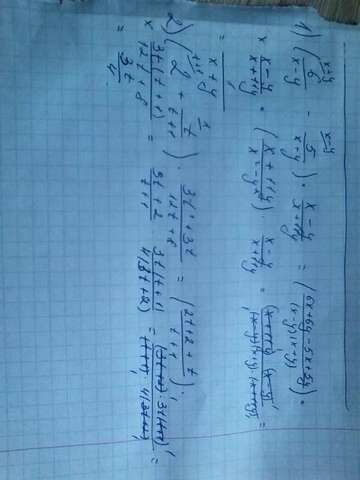 1) (6/(x-y) - 5/(x+y)) · (x-y)/(x+11y) = ((6x+6y-5x+5y)/((x-y)(x+y))) ·
× (x-y)/(x+11y) = ((x+11y)/(x²-y²)) · (x-y)/(x+11y) = ((x+11y)(x-y))/((x-y)(x+y)·(x+11y)) =
= 1/(x+y)
2) (2 + t/(t+1)) · (3t²+3t)/(12t+8) = ((2t+2+t)/(t+1)) ·
× (3t(t+1))/(12t+8) = (3t+2)/(t+1) · (3t(t+1))/(4(3t+2)) = ((3t+2)·3t(t+1))/((t+1)·4(3t+2)) =
= 3t/4